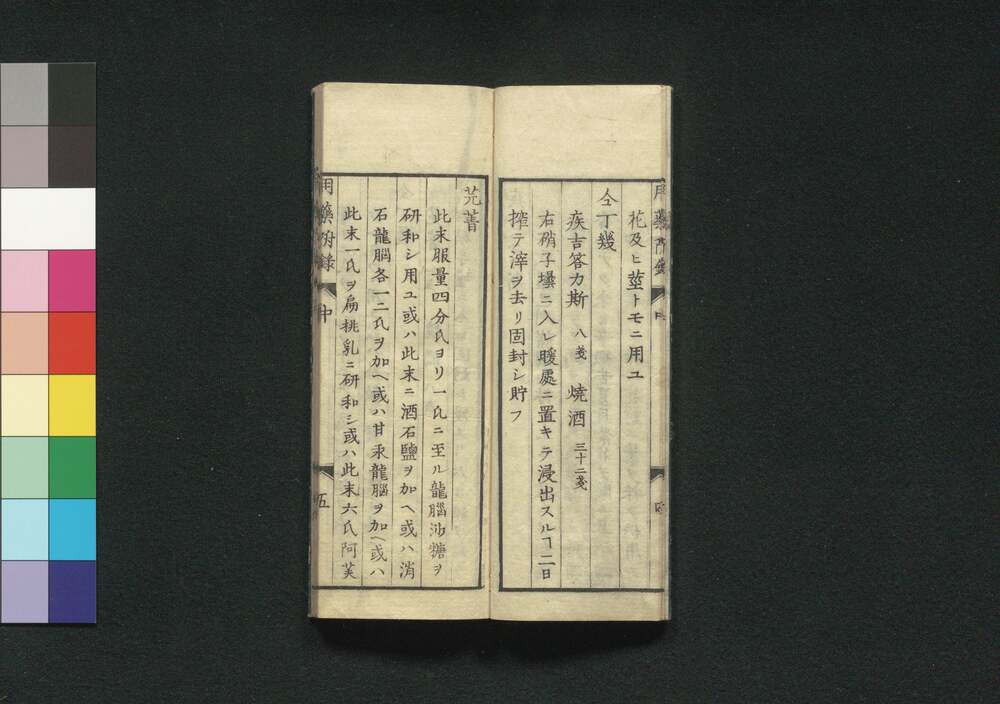 用藥附錄 中 四
花及ヒ莖トモニ用ユ
仝丁幾
疾吉答力斯 八戔 焼酒 三十二戔
右硝子壜ニ入レ暖處ニ置キテ浸出スルヿ二日
搾テ滓ヲ去リ固封シ貯フ
芫菁
此末服量四分氏ヨリ一氏ニ至ル龍腦沙糖ヲ
研和シ用ユ或ハ此末ニ酒石鹽ヲ加ヘ或ハ消
石龍腦各一二氏ヲ加ヘ或ハ甘汞龍腦ヲ加ヘ或ハ
此末一氏ヲ扁桃乳ニ研和シ或ハ此末六氏阿芙
用藥附錄 中 五